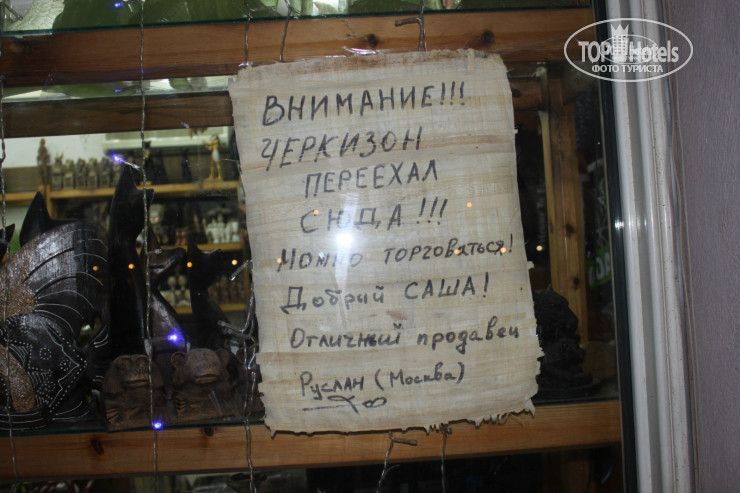 TOPHotels
ФОТО ТУРИСТА
ВНИМАНИЕ!!!
ЧЕРКИЗОН
ПЕРЕЕХАЛ
СЮДА!!!
Можно торговаться!
Добрый САША!
Отличный продавец
Руслан (Москва)